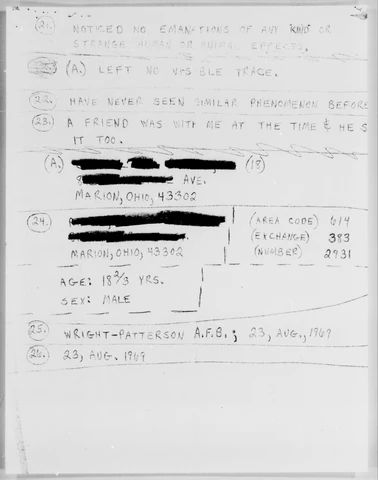 (21.) NOTICED NO EMANATIONS OF ANY KIND OR
STRANGE HUMAN OR ANIMAL EFFECTS.
(A.) LEFT NO VISIBLE TRACE.
(22.) HAVE NEVER SEEN SIMILAR PHENOMENON BEFORE
(23.) A FRIEND WAS WITH ME AT THE TIME & HE S
IT TOO.
(A.) (18)
AVE.
MARION, OHIO, 43302
(24.)
MARION, OHIO, 43302
(AREA CODE) 614
(EXCHANGE) 383
(NUMBER) 2931
AGE: 18 2/3 YRS.
SEX: MALE
(25.) WRIGHT-PATTERSON A.F.B.; 23, AUG., 1969
(26.) 23, AUG. 1969